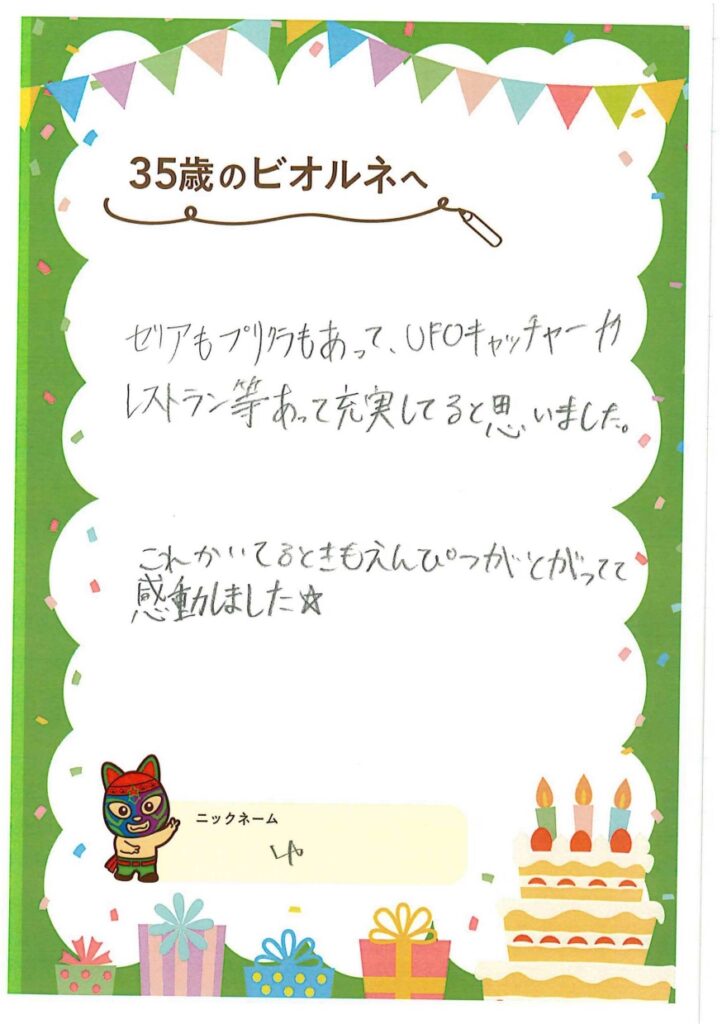 35歳のビオルネへ
ゼリアもプリクラもあって、UFOキャッチャーや
レストラン等あって充実してると思いました。
これかいてるときもえんぴつがとがってて
感動しました☆
ニックネーム